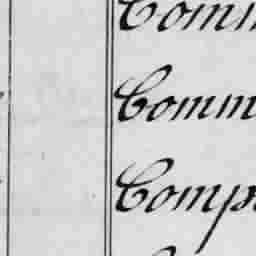 Comm
Comm
Comp